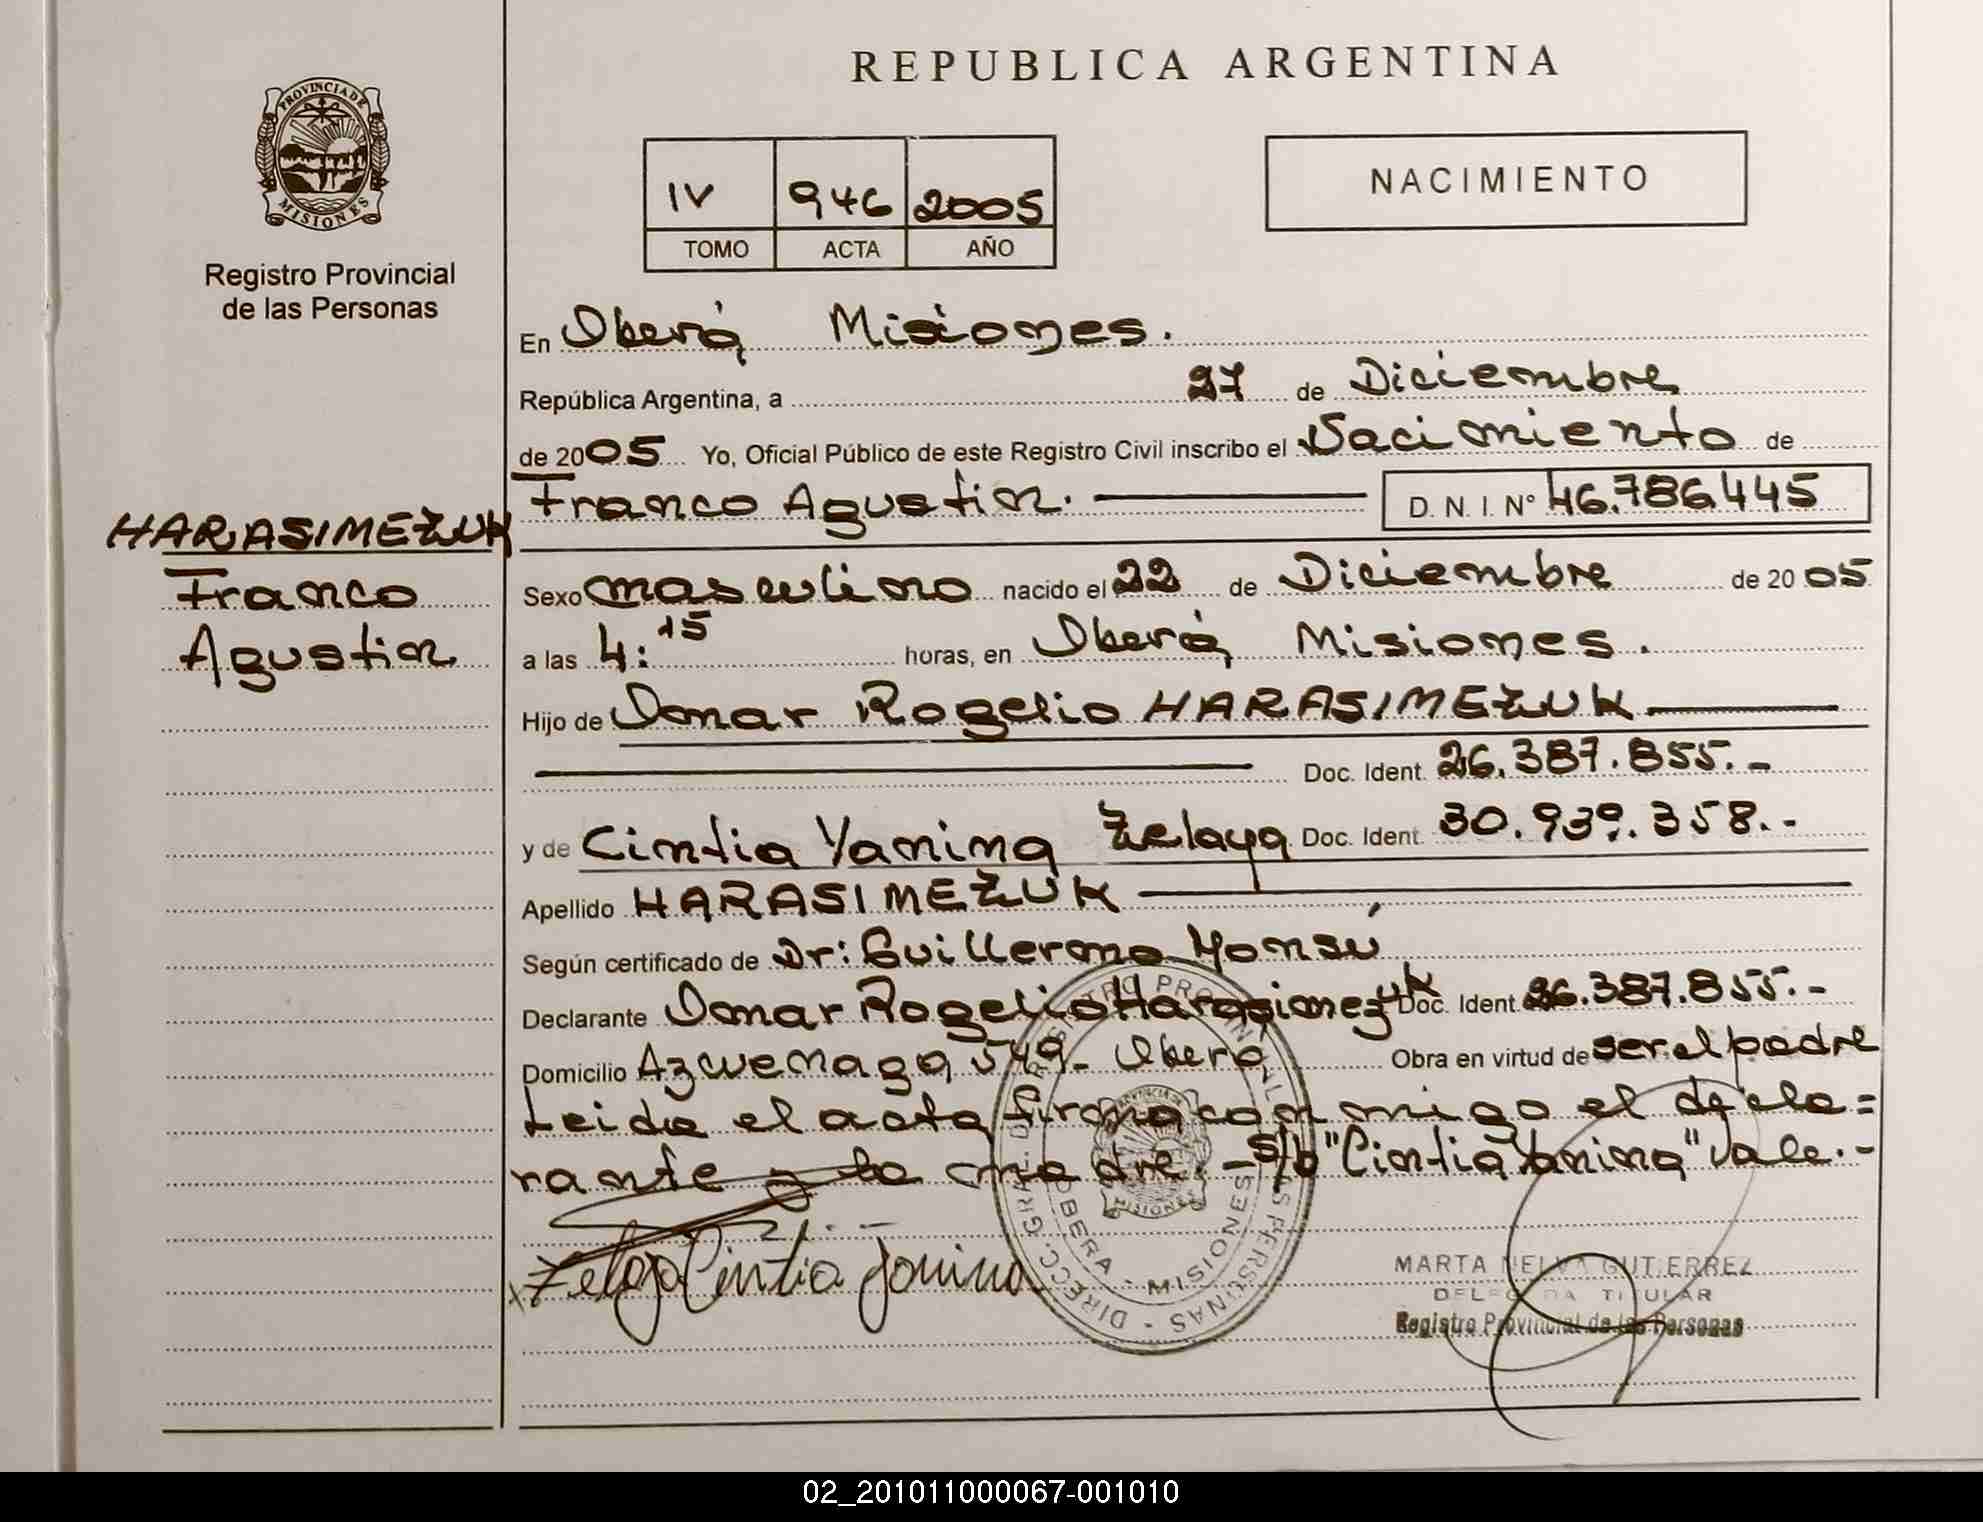 REPUBLICA ARGENTINA
PROVINCIA DE
MISIONES
Registro Provincial
de las Personas
IV 946 2005
TOMO ACTA AÑO
NACIMIENTO
En Oberá, Misiones.
República Argentina, a 27 de Diciembre
de 2005 Yo, Oficial Público de este Registro Civil inscribo el Nacimiento de
Franco Agustin. D. N. I. Nº 46.786.445
HARASIMEZUK
Franco
Agustin
Sexo masculino nacido el 22 de Diciembre de 2005
a las 4:15 horas, en Oberá, Misiones.
Hijo de Omar Rogelio HARASIMEZUK
Doc. Ident. 26.387.855.-
y de Cintia Yanina Zelaya Doc. Ident. 30.939.358.-
Apellido HARASIMEZUK
Según certificado de Dr: Guillermo Monsú
Declarante Omar Rogelio Harasimezuk Doc. Ident. 26.387.855.-
Domicilio Azcuenaga 549- Oberá Obra en virtud de ser el padre
Leida el acta firma conmigo el decla=
rante y la madre.- S/b "Cintia Yanina" Vale.-
Zelaya Cintia Yanina
DIRECC. GRAL. DE REGISTRO PROVINCIAL DE LAS PERSONAS -
OBERA - MISIONES
MISIONES
MARTA NELVA GUTIERREZ
DELEGADA TITULAR
Registro Provincial de las Personas
02_201011000067-001010